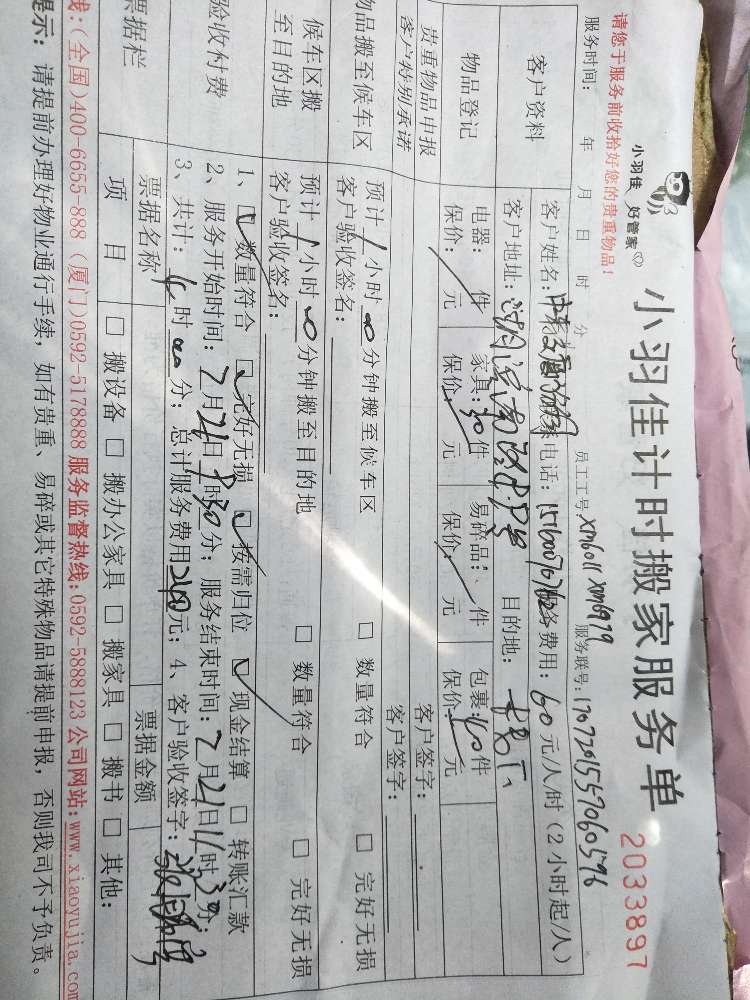 小羽佳 好管家
小羽佳计时搬家服务单
2033897
请您于服务前收拾好您的贵重物品!
员工工号: xm6011 xm6979
服务联号:
服务时间: 年 月 日 时 分
客户资料
客户姓名:
联系电话:
服务费用: 60元/人/时(2小时起/人)
客户地址:
目的地:
物品登记
电器: 件 家具: 30件 易碎品: 件 包裹: 40件
保价: 元 保价: 元 保价: 元 保价: 元
贵重物品申报
客户签字:
客户特别承诺
客户签字:
物品搬至候车区
预计1小时00分钟搬至候车区 □ 数量符合 □ 完好无损
客户验收签名:
候车区搬至目的地
预计1小时00分钟搬至目的地 □ 数量符合 □ 完好无损
客户验收签名:
验收付费
1、☑ 数量符合 ☑ 完好无损 ☑ 按需归位 ☑ 现金结算 □ 转账汇款
2、服务开始时间: 7月21日8时30分; 服务结束时间: 7月21日11时30分;
3、共计: 4时00分; 总计服务费用240元; 4、客户验收签字:
票据栏
票据名称 票据金额
项目 □ 搬设备 □ 搬办公家具 □ 搬家具 □ 搬书 □ 其他:
线:(全国)400-6655-888 (厦门)0592-5178888 服务监督热线:0592-5888123 公司网站:www.xiaoyujia.com
提示: 请提前办理好物业通行手续, 如有贵重、易碎或其它特殊物品请提前申报, 否则我司不予负责。